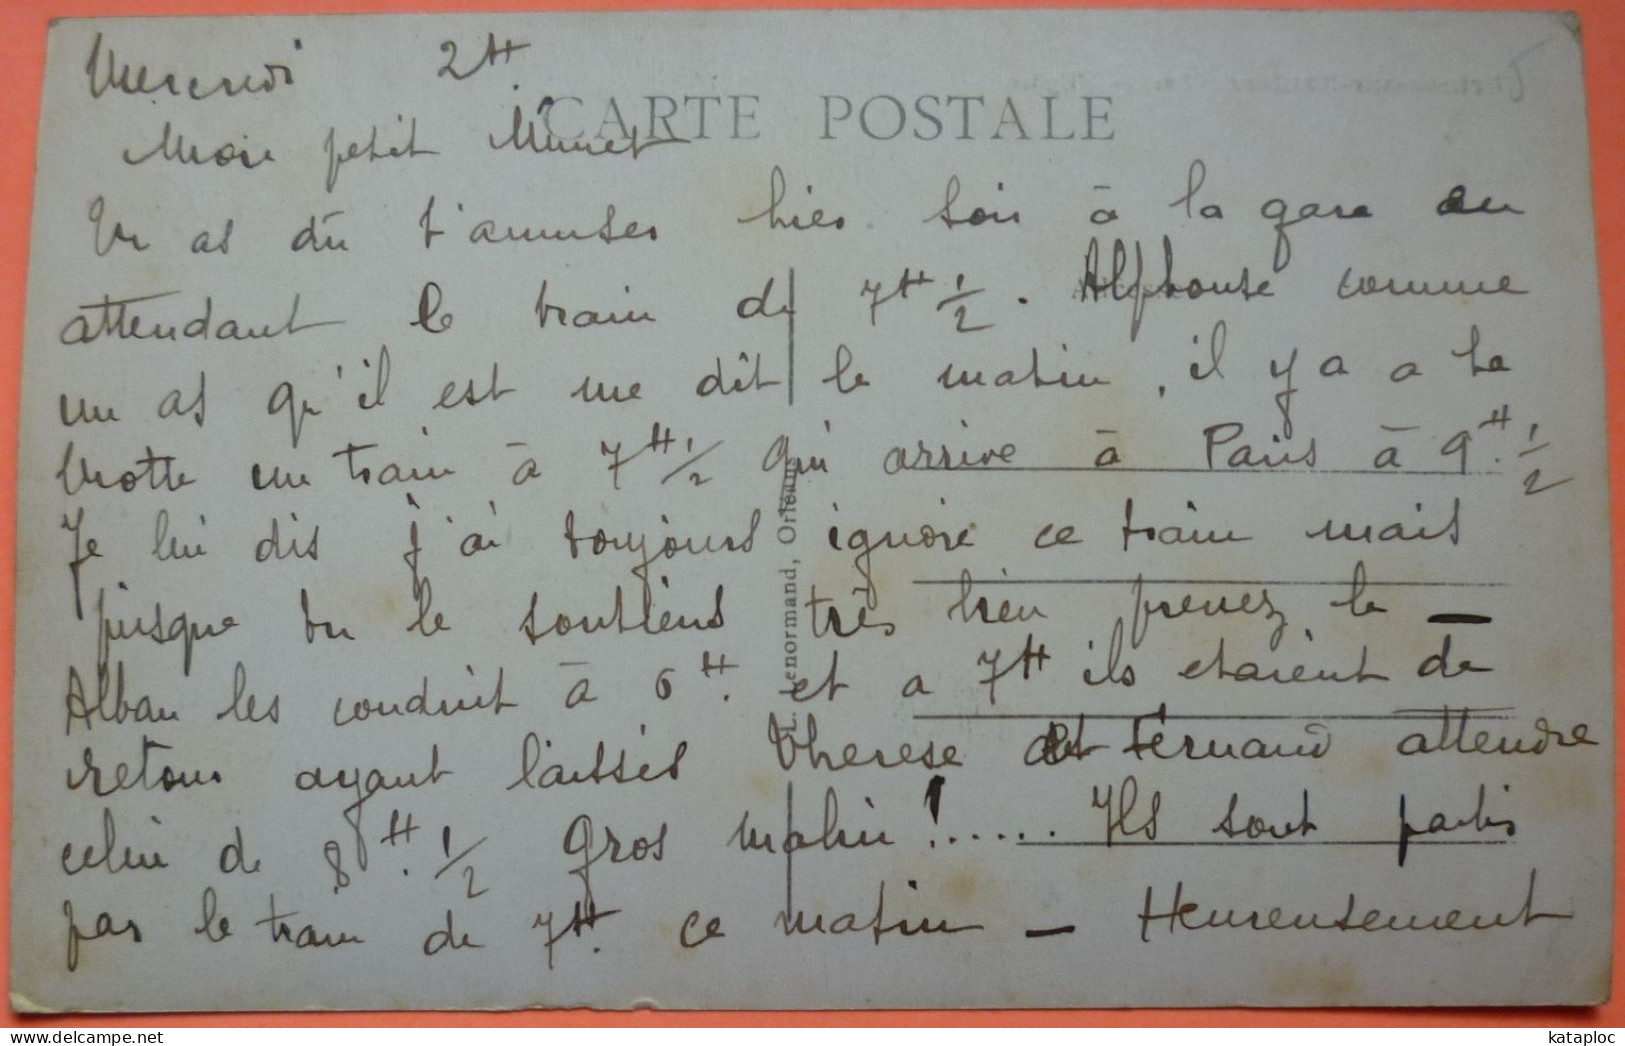 Mercredi 2H.
CARTE POSTALE
Mon petit Minet
Tu as dû t'amuser hier soir à la gare en
attendant le train de 7H 1/2. Alphonse comme
un as qu'il est me dît le matin, il y a a La
Motte un train à 7H 1/2 qui arrive à Paris à 9H. 1/2
Je lui dis j'ai toujours ignoré ce train mais
puisque tu le soutiens très bien prenez le —
Alban les conduit à 6H. et a 7H ils etaient de
retour ayant laissés Therese et Fernand attendre
celui de 8H. 1/2 Gros malin !..... Ils sont partis
par le train de 7H. ce matin — Heureusement
L. Lenormand, Orléans
kataploc